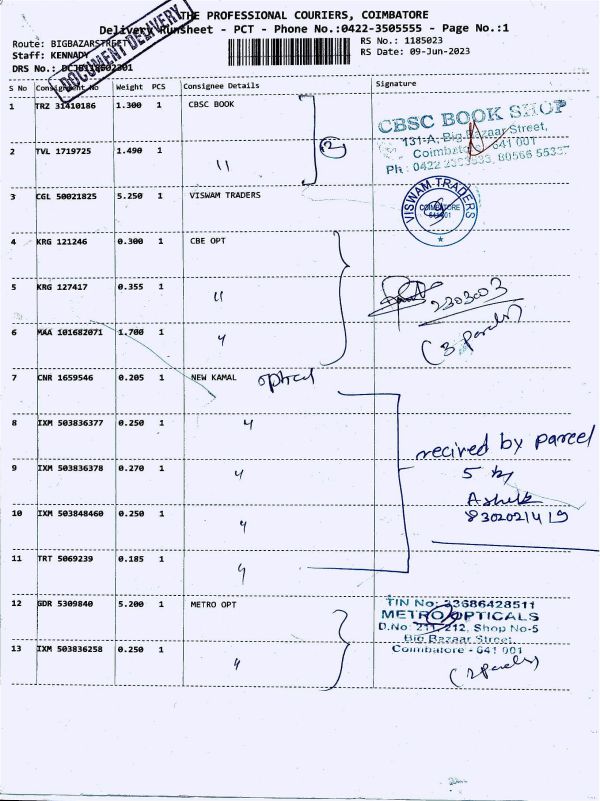 THE PROFESSIONAL COURIERS, COIMBATORE
Delivery Runsheet - PCT - Phone No.:0422-3505555 - Page No.:1
Route: BIGBAZARSTREET
RS No.: 1185023
Staff: KENNADY
RS Date: 09-Jun-2023
DRS No.:
DOCUMENT DELIVERY
S No Consignment No Weight PCS Consignee Details Signature
1 TRZ 31410186 1.300 1 CBSC BOOK
2 TVL 1719725 1.490 1 "
(2)
CBSC BOOK SHOP
131-A, Big Bazaar Street,
Coimbatore - 641 001
Ph : 0422 80566
3 CGL 50021825 5.250 1 VISWAM TRADERS
VISWAM TRADERS
COIMBATORE
641001
4 KRG 121246 0.300 1 CBE OPT
5 KRG 127417 0.355 1 "
6 MAA 101682071 1.700 1 "
2303003
(3 Parcels)
7 CNR 1659546 0.205 1 NEW KAMAL optical
8 IXM 503836377 0.250 1 "
9 IXM 503836378 0.270 1 "
10 IXM 503848460 0.250 1 "
11 TRT 5069239 0.185 1 "
recived by parcel
5 by
Ashok
12 GDR 5309840 5.200 1 METRO OPT
13 IXM 503836258 0.250 1 "
TIN No: 33686428511
METRO OPTICALS
D.No 211, 212, Shop No-5
Big Bazaar Street,
Coimbatore - 641 001
(2 Parcels)